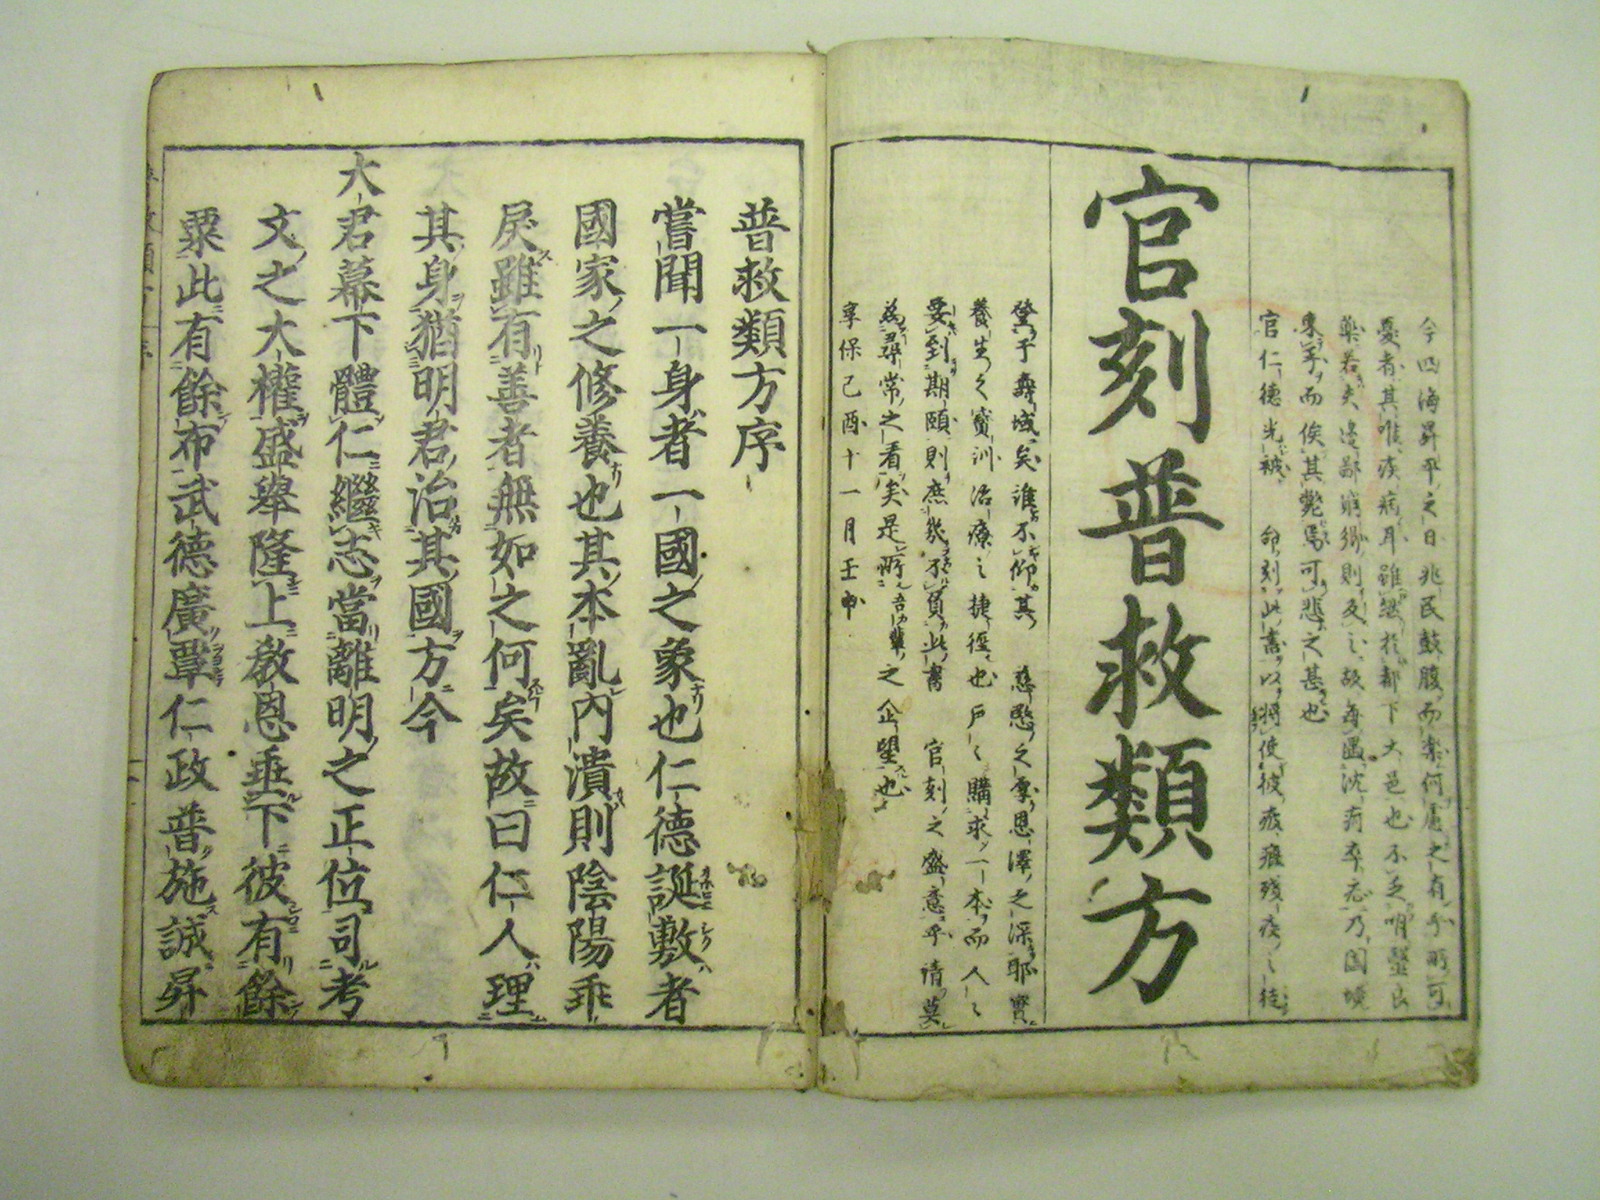 今四海昇平之日兆民鼓腹而楽何慮之有乎所可
憂者其唯疾病耳雖然於都下大邑也不乏明醫良
薬若夫邊鄙窮郷則及之故毎遇沈痾卒乃国境
束手而俟其斃焉可悲之甚也
官仁德光被 命刻此書以将使彼疲癃残疾之徒
官刻普救類方
登于壽域矣誰不仰其 慈愍之厚恩澤之深耶實
養生之寳訓治療之捷徑也戸々購求一本而人々
要到期頤則庶幾不負此書 官刻之盛意乎請莫
為尋常之看矣是所吾輩之企望也
享保己酉十一月壬申
普救類方序
嘗聞一身者一國之象也仁德誕敷者
國家之修養也其本亂内潰則陰陽乖
戻雖有善者無如之何矣故曰仁人理
其身猶明君治其國方今
大君幕下體仁繼志當離明之正位司考
文之大權盛舉隆上敎恩垂下彼有餘
粟此有餘布武德廣覃仁政普施誠昇